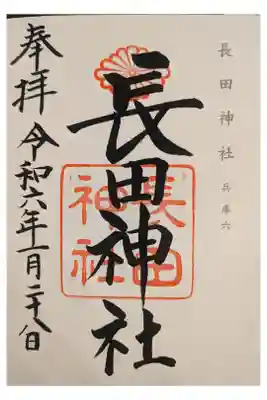 長田神社 兵庫六
長田神社
長田神社
奉拝 令和六年一月二十八日